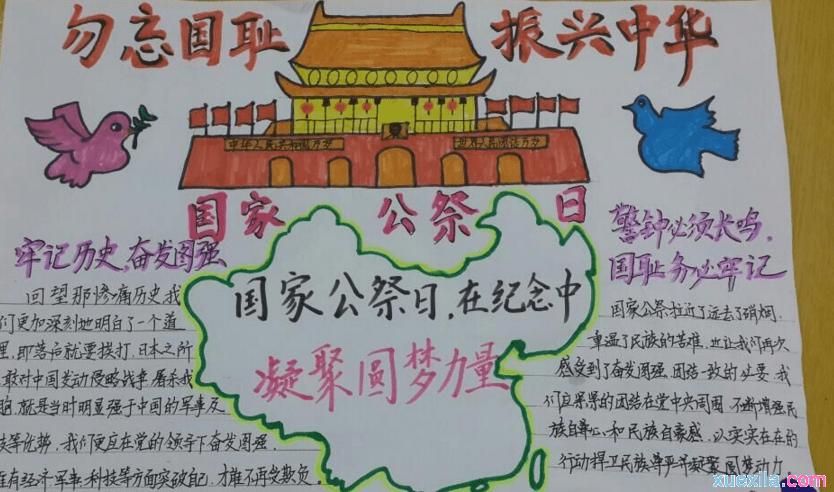 勿忘国耻 振兴中华
中华人民共和国万岁 世界人民团结万岁
国家 公祭 日
牢记历史,奋发图强
回望那惨痛历史我
们更加深刻地明白了一个道
理,即落后就要挨打,日本之所
敢对中国发动侵略战争,屠杀我
胞,就是当时明显强于中国的军事及
技等优势,我们更应在党的领导下奋发图强,
有经济军事科技等方面突破自己,才能不再受欺负。
国家公祭日,在纪念中
凝聚圆梦力量
警钟必须长鸣,
国耻务必牢记
国家公祭拉近了远去了硝烟,
重温了民族的苦难,也让我们再次
感受到了奋发图强、团结一致的必要,我
们应紧紧的团结在党中央周围,不断增强民
族自尊心和民族自豪感,以实实在在的
行动捍卫民族尊严并凝聚圆梦动力
学习啦
xuexila.com